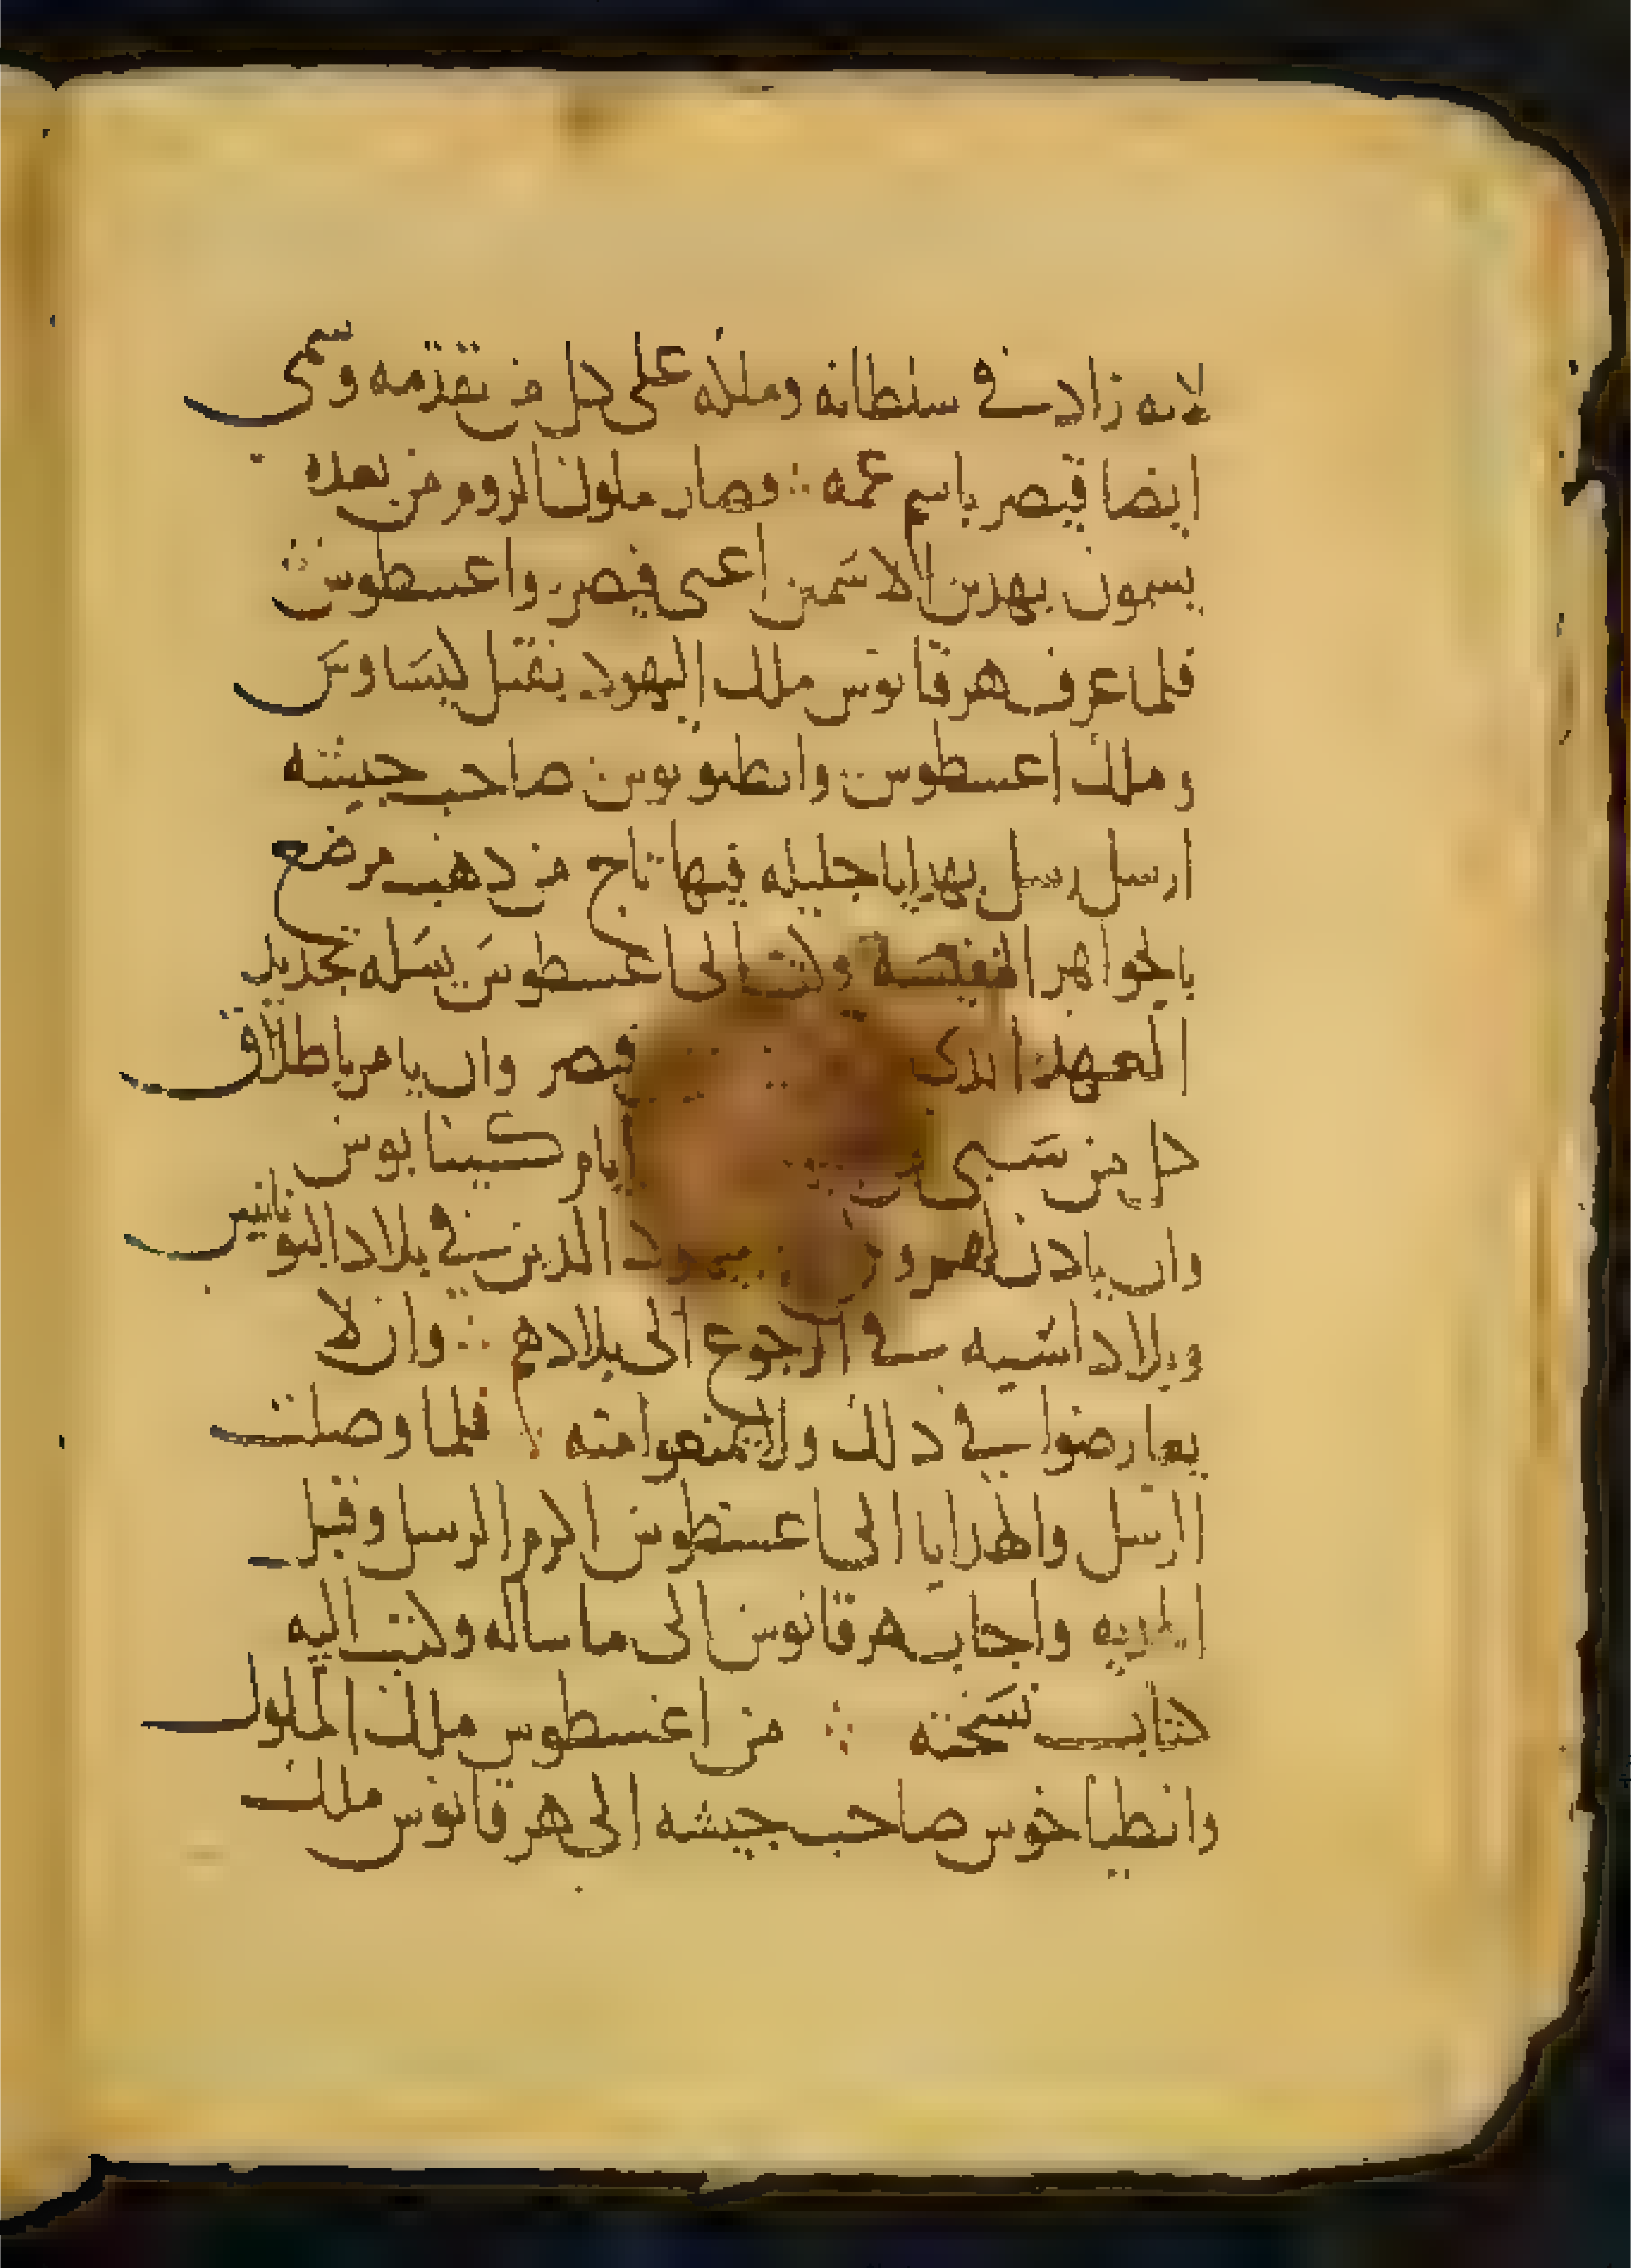 لانه زاد في سلطانه وملكه على كل من تقدمه وسمي
ايضا قيصر باسم عمه ∴ وصار ملوك الروم من بعده
يسمون بهدين الاسمين اعني قيصر واغسطوس
فلما عرف هرقانوس ملك اليهود بقتل ليساوس
وملك اغسطوس وانطونيوس صاحب جيشه
ارسل رسل بهدايا جليله فيها تاج من دهب مرضع
بالجواهر النفيسة وكتب الى اغسطوس يسله تجديد
العهد الدي قيصر وان يامر باطلاق
كل من سبي من ايام كيسانوس
وان يادن لهم و الدين في بلاد اليونانيين
وبلاد اسيه في الرجوع الى بلادهم ∴ وان لا
يعارضوا في دلك ولا يمنعوا منه فلما وصلت
الرسل والهدايا الى اغسطوس اكرم الرسل وقبل
الهديه واجاب هرقانوس الى ما ساله وكتب اليه
كتاب نسخته ∴ من اغسطوس ملك الملوك
وانطياخوس صاحب جيشه الى هرقانوس ملك